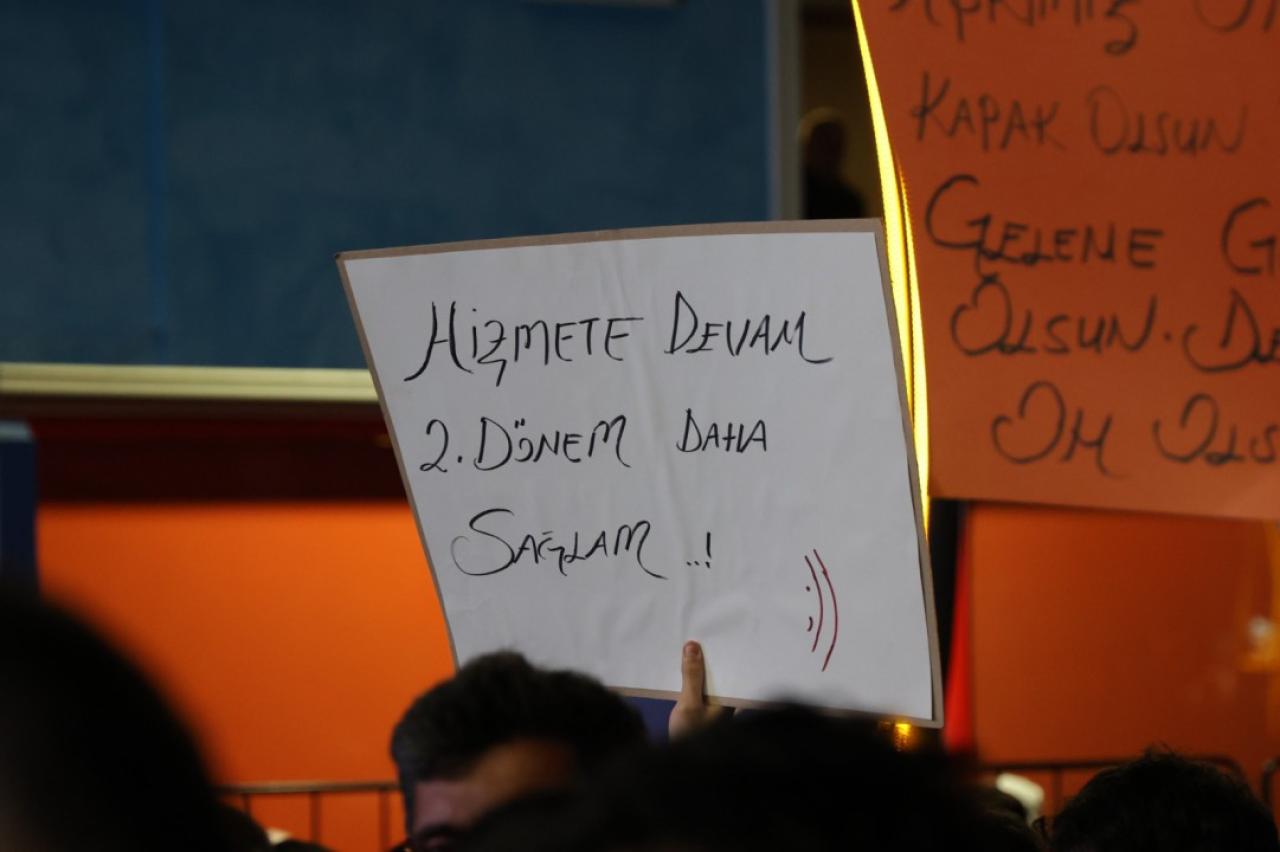 HİZMETE DEVAM
2. DÖNEM DAHA
SAĞLAM ..!
;))
KAPAK OLSUN
GELENE G
OLSUN.
OH OLS